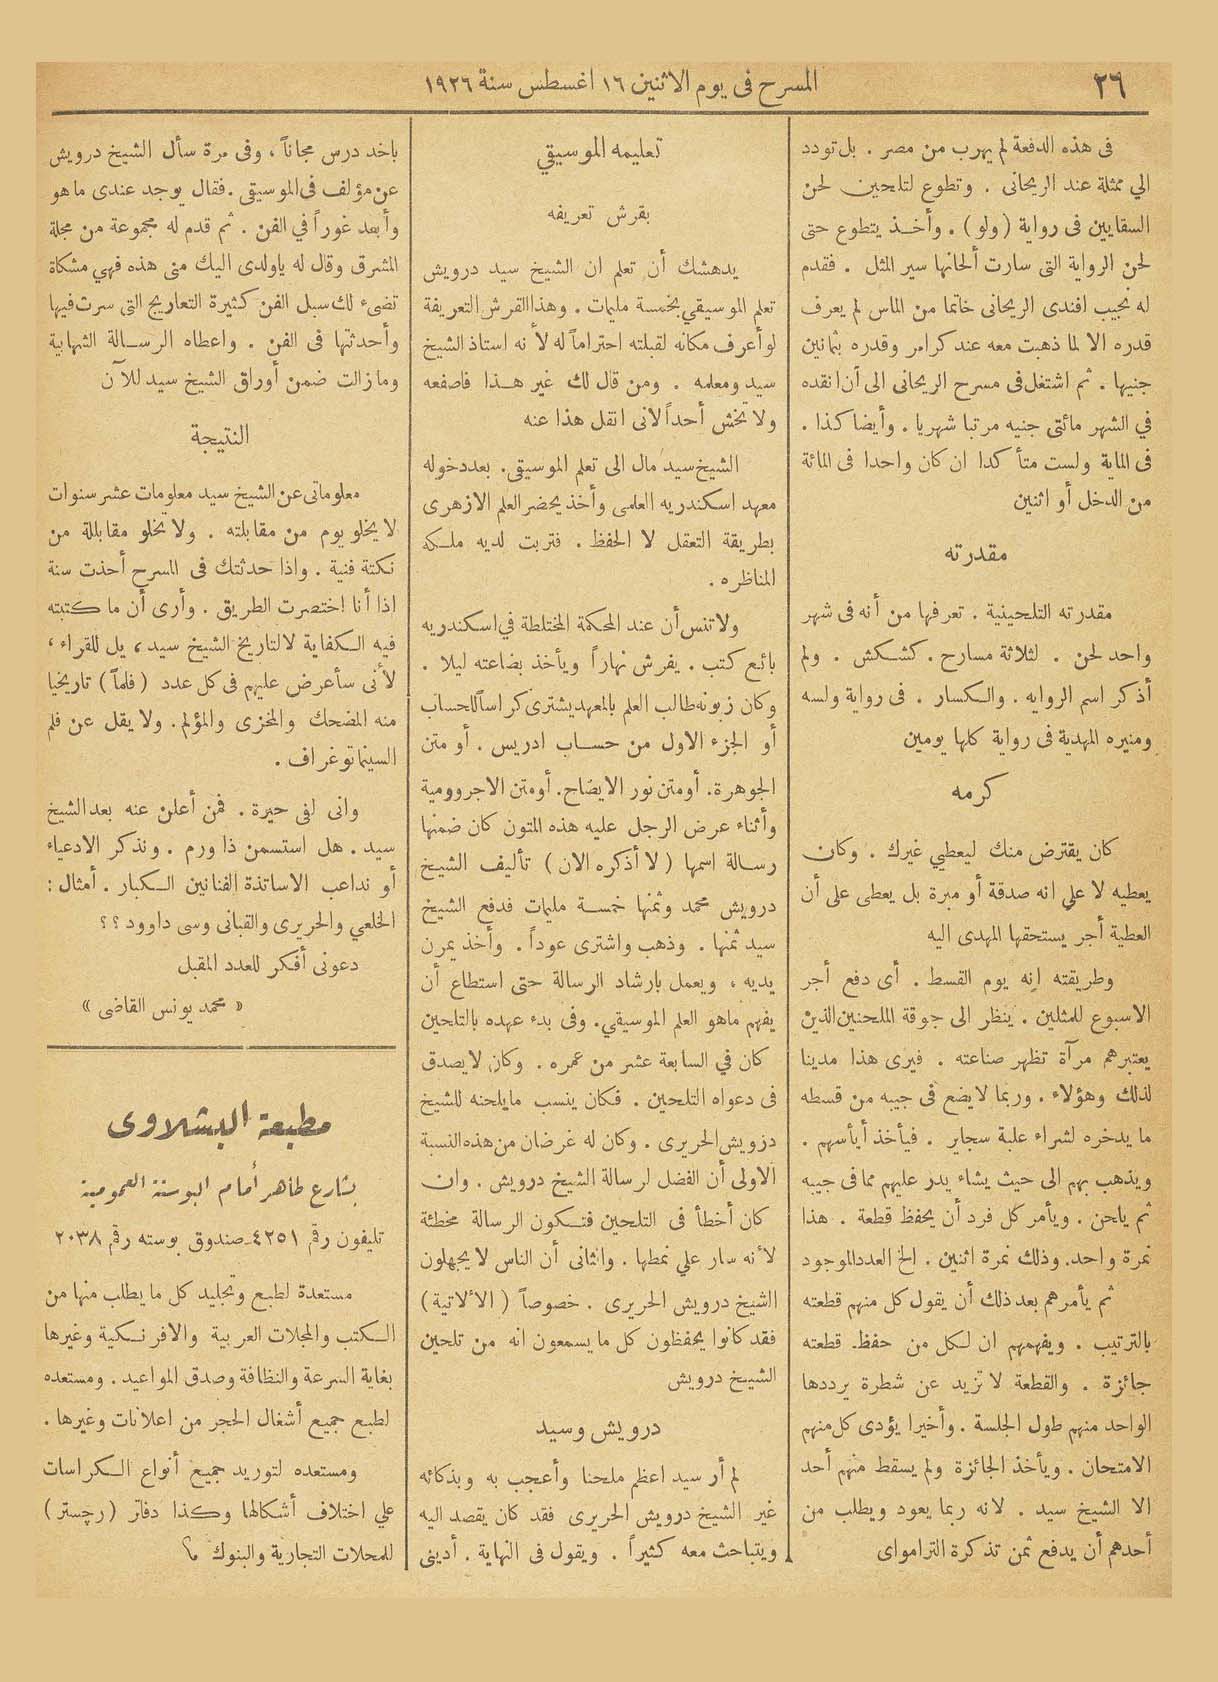 ٢٦
المسرح فى يوم الاثنين ١٦ اغسطس سنة ١٩٢٦
فى هذه الدفعة لم يهرب من مصر . بل تودد
الي ممثلة عند الريحانى . وتطوع لتلحين لحن
السقايين فى رواية (ولو) . وأخذ يتطوع حتى
لحن الرواية التى سارت ألحانها سير المثل . فقدم
له نجيب افندى الريحانى خاتما من الماس لم يعرف
قدره الا لما ذهبت معه عند كرامر وقدره بثمانين
جنيها . ثم اشتغل فى مسرح الريحانى الى آن انقده
في الشهر مائتى جنيه مرتبا شهريا . وأيضا كذا .
فى الماية ولست متأكدا ان كان واحدا فى المائة
من الدخل أو اثنين
مقدرته
مقدرته التلحينية . تعرفها من أنه فى شهر
واحد لحن . لثلاثة مسارح . كشكش . ولم
أذكر اسم الروايه . والكسار . فى رواية ولسه
ومنيره المهدية فى رواية كلها يومين
كرمه
كان يقترض منك ليعطيي غيرك . وكان
يعطيه لا علي انه صدقة أو مبرة بل يعطى على أن
العطية أجر يستحقها المهدى اليه
وطريقته إنه يوم القسط . أى دفع أجر
الاسبوع للمثلين . ينظر الى جوقة الملحنين الذين
يعتبرهم مرآة تظهر صناعته . فيرى هذا مدينا
لذلك وهؤلاء . وربما لا يضع فى جيبه من قسطه
ما يدخره لشراء علبة سجاير . فيأخذ أيأسهم .
ويذهب بهم الى حيث يشاء يدر عليهم مما فى جيبه
ثم يلحن . ويأمر كل فرد أن يحفظ قطعة . هذا
نمرة واحد. وذلك نمرة اثنين . الخ العدد الموجود
ثم يأمرهم بعد ذلك أن يقول كل منهم قطعته
بالترتيب . ويفهمهم ان لكل من حفظ قطعته
جائزة . والقطعة لا تزيد عن شطرة يرددها
الواحد منهم طول الجلسة . وأخيرا يؤدى كل منهم
الامتحان . ويأخذ الجائزة ولم يسقط منهم أحد
الا الشيخ سيد . لانه ربما يعود ويطلب من
أحدهم أن يدفع ثمن تذكرة الترامواى
تعليمه الموسيقي
بقرش تعريفه
يدهشك أن تعلم ان الشيخ سيد درويش
تعلم الموسيقي بخمسة مليمات . وهذا القرش التعريفة
لو أعرف مكانه لقبلته احتراماً له لأنه استاذ الشيخ
سيد ومعلمه . ومن قال لك غير هذا فاصفعه
ولا تخش أحداً لانى انقل هذا عنه
الشيخ سيد مال الى تعلم الموسيقى. بعد دخوله
معهد اسكندريه العلمى وأخذ يحضر العلم الازهرى
بطريقة التعقل لا الحفظ . فتربت لديه ملكه
المناظره .
ولا تنس أن عند المحكمة المختلطة في اسكندريه
بائع كتب . يفرش نهاراً ويأخذ بضاعته ليلا .
وكان زبونه طالب العلم بالمعهد يشترى كراساً للحساب
أو الجزء الاول من حساب ادريس . أو متن
الجوهرة. أو متن نور الايضاح. أو متن الاجروومية
وأثناء عرض الرجل عليه هذه المتون كان ضمنها
رسالة اسمها ( لا أذكره الان ) تأليف الشيخ
درويش محمد وثمنها خمسة مليمات فدفع الشيخ
سيد ثمنها . وذهب واشترى عوداً . وأخذ يمرن
يديه ، ويعمل بارشاد الرسالة حتى استطاع أن
يفهم ماهو العلم الموسيقي. وفى بدء عهده بالتلحين
كان في السابعة عشر من عمره . وكان لا يصدق
فى دعواه التلحين . فكان ينسب ما يلحنه للشيخ
درويش الحريرى . وكان له غرضان من هذه النسبة
الاولى أن الفضل لرسالة الشيخ درويش . وان
كان أخطأ فى التلحين فتكون الرسالة مخطئة
لأنه سار علي نمطها . والثانى أن الناس لا يجهلون
الشيخ درويش الحريرى . خصوصاً ( الألاتية )
فقد كانوا يحفظون كل ما يسمعون انه من تلحين
الشيخ درويش
درويش وسيد
لم أر سيد اعظم ملحنا وأعجب به وبذكائه
غير الشيخ درويش الحريرى فقد كان يقصد اليه
ويتباحث معه كثيراً . ويقول فى النهاية . أدينى
باخد درس مجاناً ، وفى مرة سأل الشيخ درويش
عن مؤلف فى الموسيقى . فقال يوجد عندى ما هو
وأبعد غوراً في الفن . ثم قدم له مجموعة من مجلة
المشرق وقال له ياولدى اليك منى هذه فهي مشكاة
تضىء لك سبل الفن كثيرة التعاريج التى سرت فيها
وأحدثتها فى الفن . واعطاه الرسالة الشهابية
وما زالت ضمن أوراق الشيخ سيد للآن
النتيجة
معلوماتى عن الشيخ سيد معلومات عشر سنوات
لا يخلو يوم من مقابلته . ولا تخلو مقابللة من
نكتة فنية . واذا حدثتك فى المسرح أخذت سنة
اذا أنا اختصرت الطريق . وأرى أن ما كتبته
فيه الكفاية لا لتاريخ الشيخ سيد، يل للقراء ،
لأنى سأعرض عليهم فى كل عدد ( فلماً ) تاريخيا
منه المضحك والمخزى والمؤلم. ولا يقل عن فلم
السينما توغراف .
وانى لفى حيرة . فمن أعلن عنه بعد الشيخ
سيد . هل استسمن ذا ورم . ونذكر الادعياء
أو نداعب الاساتذة الفنانين الكبار . أمثال :
الخلعي والحريرى والقبانى وسى داوود ؟ ؟
دعونى أفكر للعدد المقبل
« محمد يونس القاضى »
مطبعة البشلاوى
بشارع طاهر أمام البوستة العمومية
تليفون رقم ٤٢٥١ـ صندوق بوسته رقم ٢٠٣٨
مستعدة لطبع وتجليد كل ما يطلب منها من
الكتب والمجلات العربية والافرنكية وغيرها
بغاية السرعة والنظافة وصدق المواعيد . ومستعده
لطبع جميع أشغال الحجر من اعلانات وغيرها .
ومستعده لتوريد جميع أنواع الكراسات
علي اختلاف أشكالها وكذا دفاتر ( رچستر )
للمحلات التجارية والبنوك